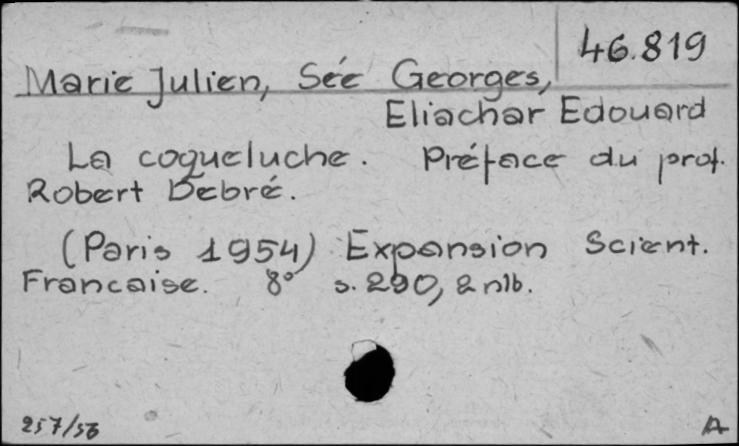 46.819
Marie Julien, Sée Georges,
Eliachar Edouard
La coqueluche. Préface du prof.
Robert Debré.
(Paris 1954) Expansion Scient.
Francaise. 8° s. 290, 2 nlb.
257/56
A